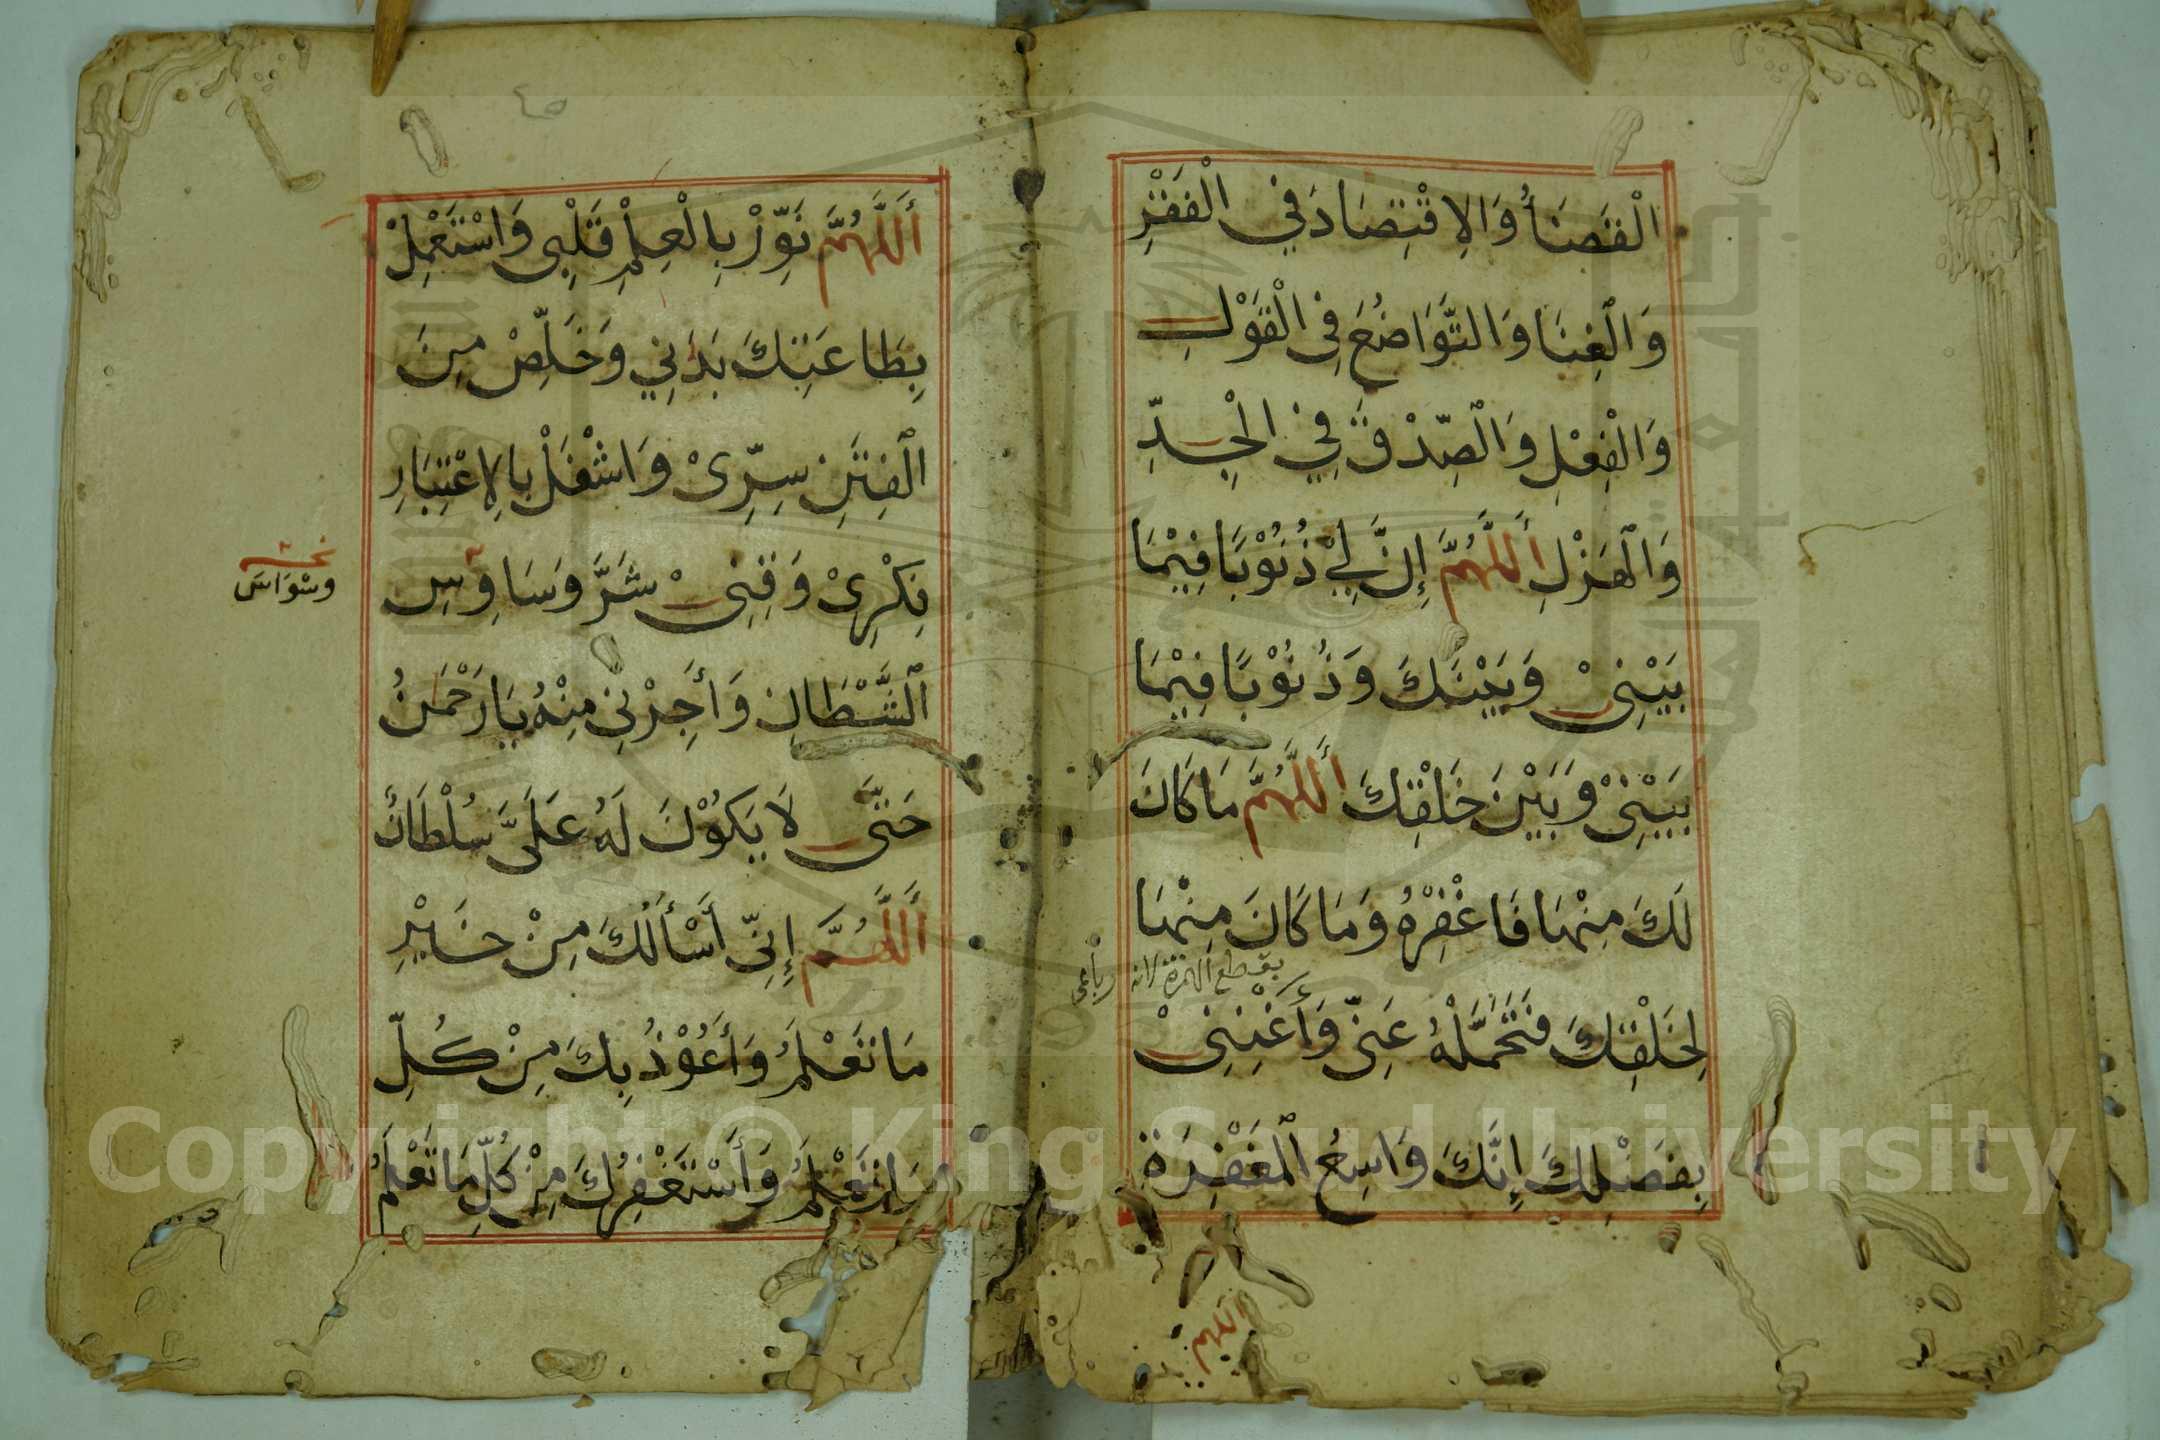 الْقَصَأَُ وَالِاقْتِصَادَ فِي الْفَقْرِ
وَالْغِنَا وَالتَّوَاضُعَ فِي الْقَوْلِ
وَالْفِعْلِ وَالصِّدْقَ فِي الْجِدِّ
وَالْهَزْلِ أَللَّهُمَّ إِنَّ لِيْ ذُنُوْبًا فِيْمَا
بَيْنِيْ وَبَيْنَكَ وَذُنُوْبًا فِيْمَا
بَيْنِيْ وَبَيْنَ خَلْقِكَ أَللَّهُمَّ مَا كَانَ
لَكَ مِنْهَا فَاغْفِرْهُ وَمَا كَانَ مِنْهَا
بقطع الهمزة لانه رباعى
لِخَلْقِكَ فَتَحَمَّلْهُ عَنِّي وَأَغْنِنِيْ
بِفَضْلِكَ إِنَّكَ وَاسِعُ الْمَغْفِرَةِ
اللهم
أَللَّهُمَّ نَوِّرْ بِالْعِلْمِ قَلْبِي وَاسْتَعْمِلْ
بِطَاعَتِكَ بَدَنِي وَخَلِّصْ مِنَ
الْفِتَنِ سِرِّيْ وَاشْغَلْ بِالِاعْتِبَارِ
فِكْرِيْ وَقِنِيْ شَرَّ وَسَاوِسِ
وسْوَاسَ
الشَّيْطَانِ وَأَجِرْنِي مِنْهُ يَا رَحْمَنُ
حَتَّى لَا يَكُوْنَ لَهُ عَلَيَّ سُلْطَانٌ
أَللَّهُمَّ إِنِّي أَسْأَلُكَ مِنْ خَيْرِ
مَا تَعْلَمُ وَأَعُوْذُ بِكَ مِنْ كُلِّ
مَا تَعْلَمُ وَأَسْتَغْفِرُكَ مِنْ كُلِّ مَا تَعْلَمُ
Copyright © King Saud University